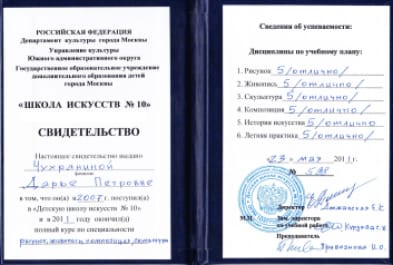 РОССИЙСКАЯ ФЕДЕРАЦИЯ
Департамент культуры города Москвы
Управление культуры
Южного административного округа
Государственное образовательное учреждение
дополнительного образования детей
города Москвы
«ШКОЛА ИСКУССТВ № 10»
СВИДЕТЕЛЬСТВО
Настоящее свидетельство выдано
Чухряниной
фамилия
Дарье Петровне
в том, что он(а) в 2007 г. поступил(а)
в «Детскую школу искусств № 10»
и в 2011 году окончил(а)
полный курс по специальности
рисунок, живопись, композиция, скульптура
Сведения об успеваемости:
Дисциплины по учебному плану:
1. Рисунок 5/отлично/
2. Живопись 5/отлично/
3. Скульптура 5/отлично/
4. Композиция 5/отлично/
5. История искусства 5/отлично
6. Летняя практика 5/отлично/
«23» мая 2011 г.
№
Директор
М.П.
Зам. директора
по учебной работе
Преподаватель